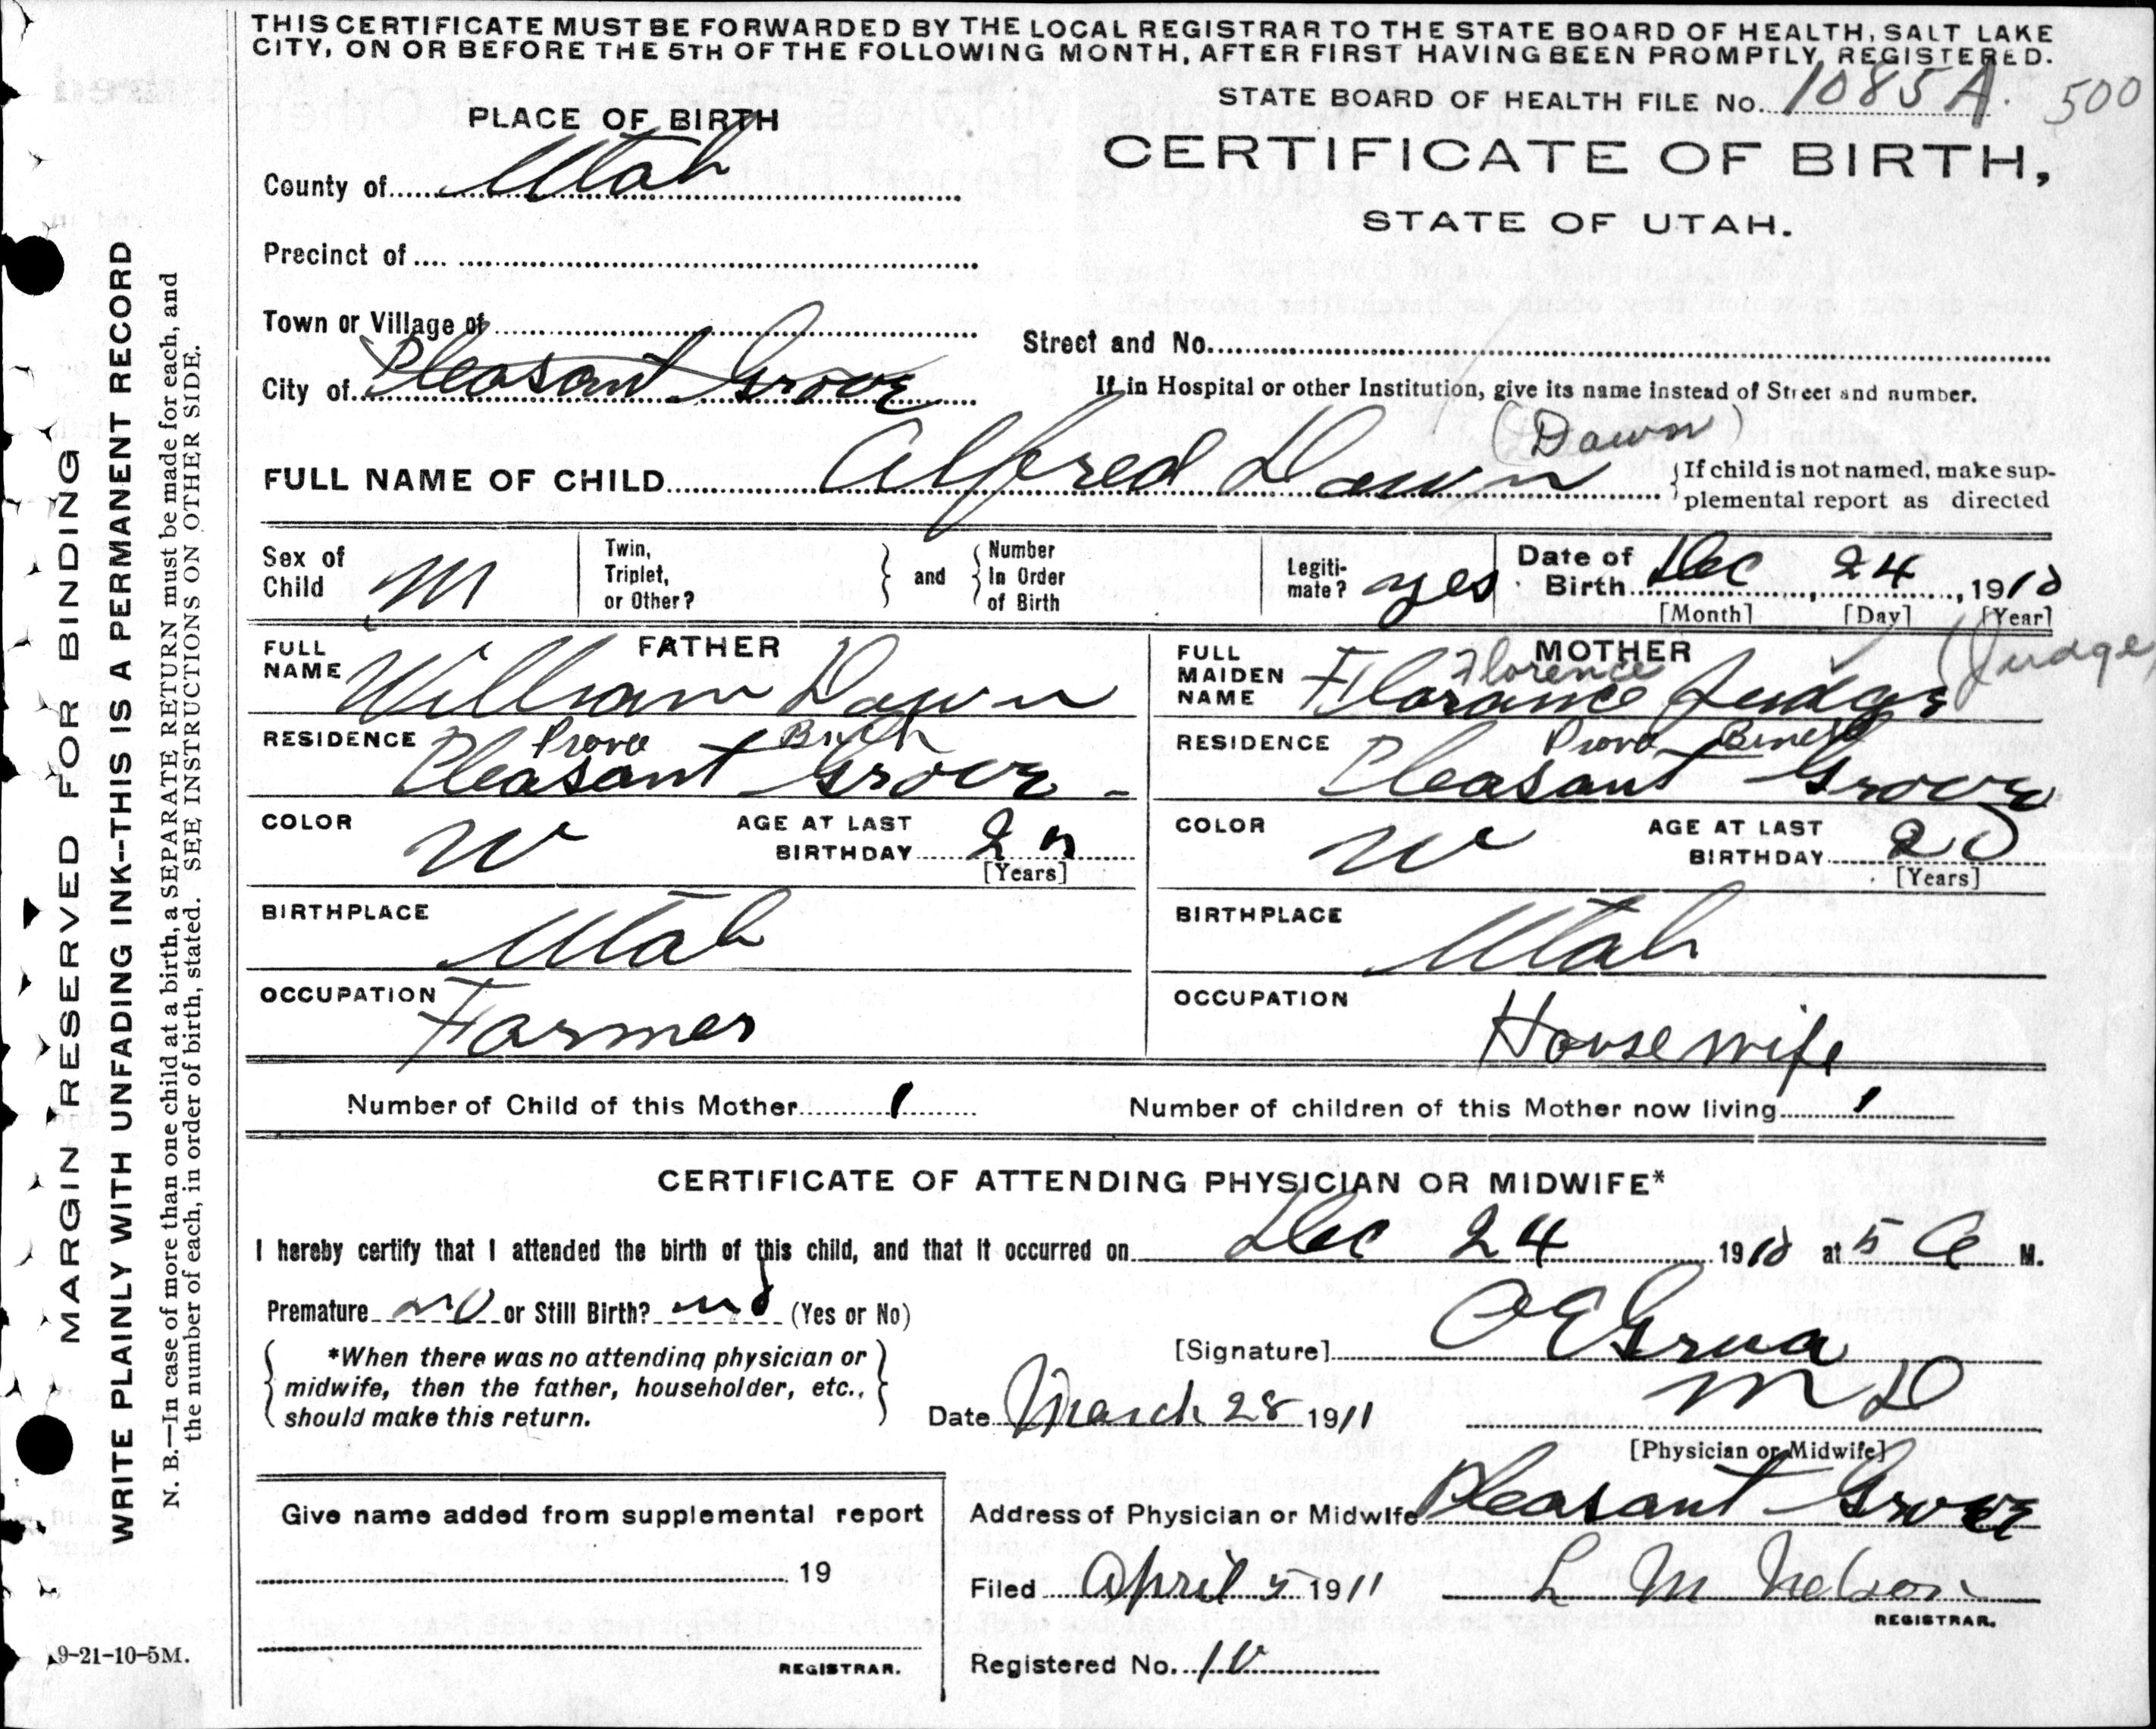 THIS CERTIFICATE MUST BE FORWARDED BY THE LOCAL REGISTRAR TO THE STATE BOARD OF HEALTH, SALT LAKE
CITY, ON OR BEFORE THE 5TH OF THE FOLLOWING MONTH, AFTER FIRST HAVING BEEN PROMPTLY REGISTERED.
STATE BOARD OF HEALTH FILE No. 1085 A. 500
PLACE OF BIRTH
CERTIFICATE OF BIRTH,
STATE OF UTAH.
County of Utah
Precinct of
Town or Village of
Street and No.
City of Pleasant Grove
If in Hospital or other Institution, give its name instead of Street and number.
(Dawn)
FULL NAME OF CHILD Alfred Dawn
If child is not named, make sup-
plemental report as directed
Sex of Child M
Twin, Triplet, or Other? and Number In Order of Birth
Legiti-mate? yes
Date of Birth Dec 24, 1910
[Month] [Day] [Year]
FATHER
FULL NAME William Dawn
MOTHER
FULL MAIDEN NAME Florance Judge
Florence (Judge)
RESIDENCE Pleasant Grove
Provo
RESIDENCE Pleasant Grove
Provo Bench
COLOR W
AGE AT LAST BIRTHDAY
[Years]
COLOR W
AGE AT LAST BIRTHDAY 20
[Years]
BIRTHPLACE Utah
BIRTHPLACE Utah
OCCUPATION Farmer
OCCUPATION Housewife
Number of Child of this Mother 1
Number of children of this Mother now living 1
CERTIFICATE OF ATTENDING PHYSICIAN OR MIDWIFE*
I hereby certify that I attended the birth of this child, and that it occurred on Dec 24 1910 at 5 A M.
Premature no or Still Birth? no (Yes or No)
*When there was no attending physician or
midwife, then the father, householder, etc.,
should make this return.
[Signature] O E Grua
M D
Date March 28 1911
[Physician or Midwife]
Address of Physician or Midwife Pleasant Grove
Give name added from supplemental report
19
REGISTRAR.
Filed April 5 1911
L M Nelson
REGISTRAR.
Registered No. 10
9-21-10-5M.
MARGIN RESERVED FOR BINDING
WRITE PLAINLY WITH UNFADING INK--THIS IS A PERMANENT RECORD
N. B.—In case of more than one child at a birth, a SEPARATE RETURN must be made for each, and
the number of each, in order of birth, stated. SEE INSTRUCTIONS ON OTHER SIDE.